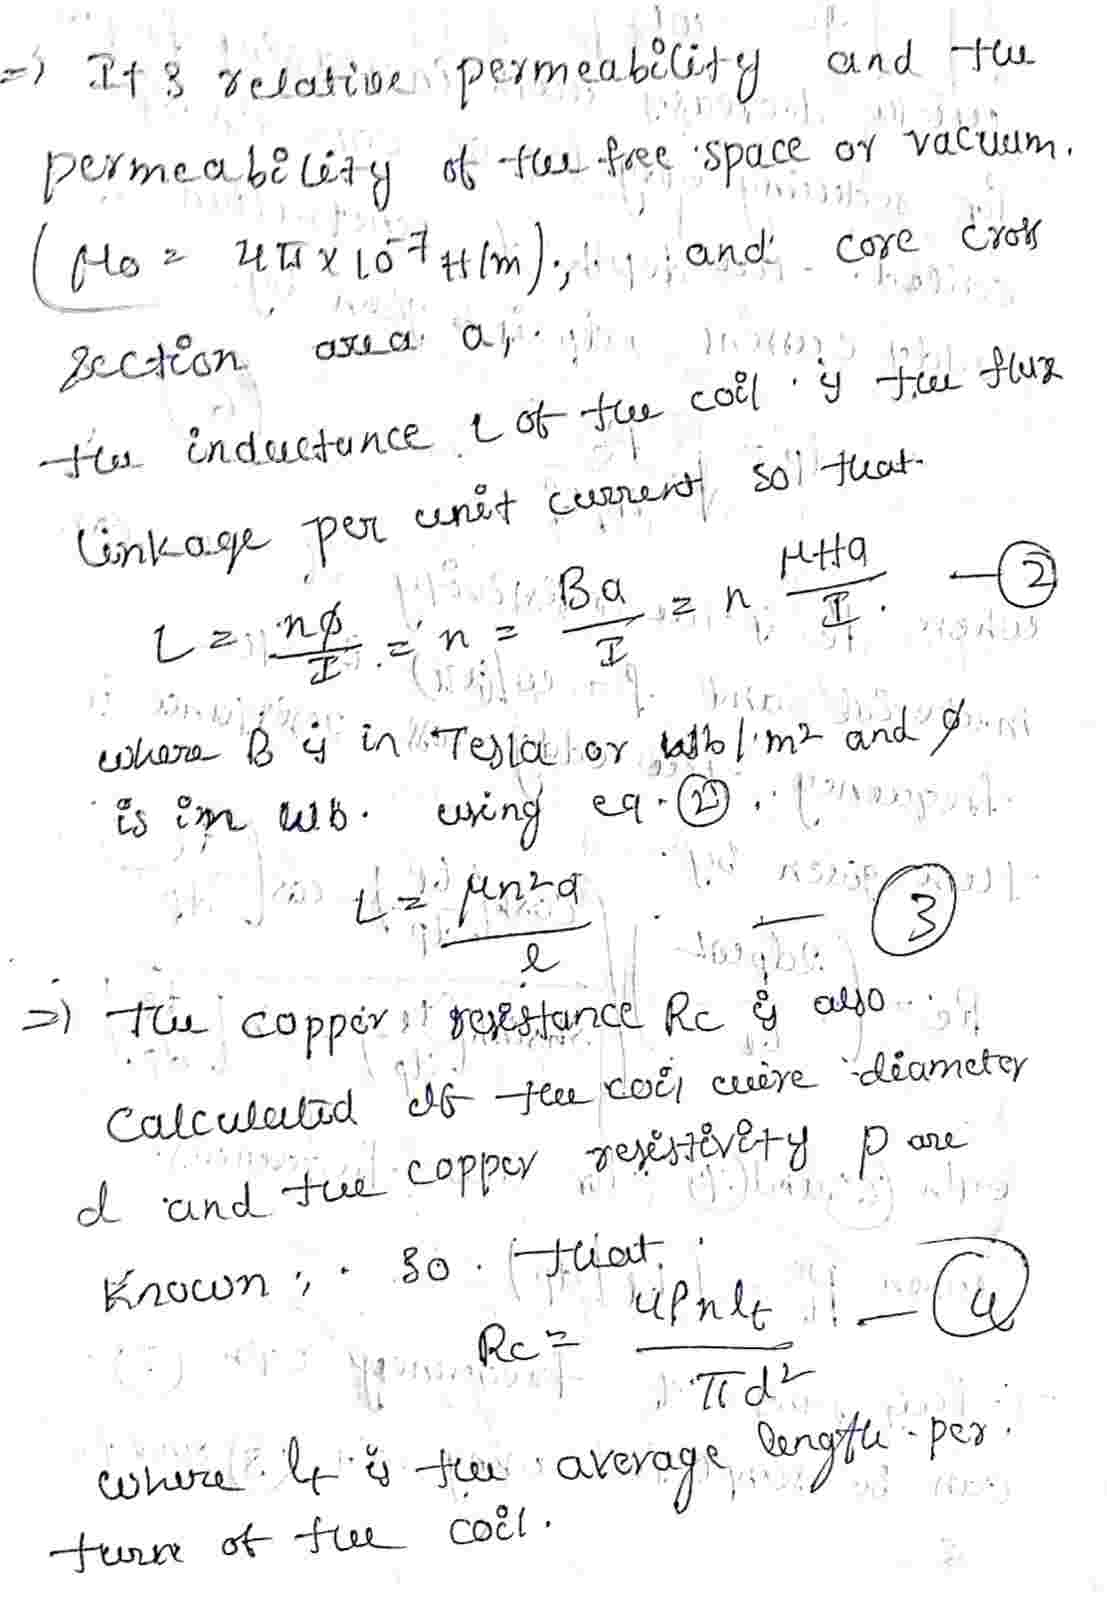 =) It's relative permeability and the
permeability of the free space or vacuum.
(μ0 = 4π×10^-7 H/m);, and core cross
section area a,
the inductance L of the coil is the flux
linkage per unit current so that
L = nφ/I = n = Ba/I = n μHa/I. — (2)
where B is in Tesla or wb/m² and φ
is im wb. using eq. (2).
L = μn²a/l — (3)
=) the copper resistance Rc is also
calculated if the coil wire diameter
d and the copper resistivity ρ are
known; so that
Rc = 4ρnlt/πd² — (4)
where lt is the average length per
turn of the coil.